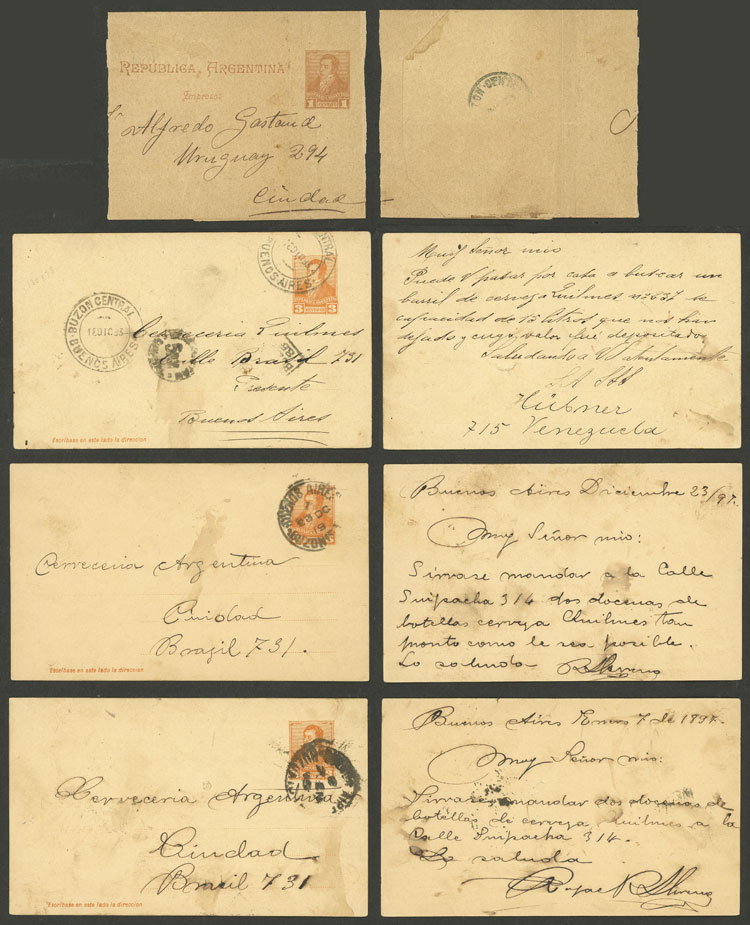 REPUBLICA ARGENTINA
1
Impresos
Sr Alfredo Gastaud
Uruguay 294
Ciudad
BUZON CENTRAL
BUENOS AIRES
BUZON CENTRAL
BUENOS AIRES
3
Cerveceria Quilmes
Calle Brazil 731
Presente
Buenos Aires
Escribase en este lado la direccion
Muy Señor mio
Puede V pasar por casa a buscar un
barril de cerveja Quilmes
capacidad de 15 litros que nos han
dejado y cuyo valor fué depositado
Saludando a V atentamente
SSS
Hübner
715 Venezuela
BUENOS AIRES
23 DC
BUZONISTA
Cerveceria Argentina
Ciudad
Brazil 731.
Escribase en este lado la direccion
Buenos Aires Diciembre 23/97.
Muy Señor mio:
Sirvase mandar a la Calle
Suipacha 314 dos docenas de
botellas cerveja Quilmes tan
pronto como le sea posible.
Lo saluda
R Moreno
Cerveceria Argentina
Ciudad
Brasil 731
Escribase en este lado la direccion
Buenos Aires Enero 7 de 189
Muy Señor mio:
Sirvase mandar dos docenas de
botellas de cerveja Quilmes a la
Calle Suipacha 314.
Lo saluda
Rafael R Moreno